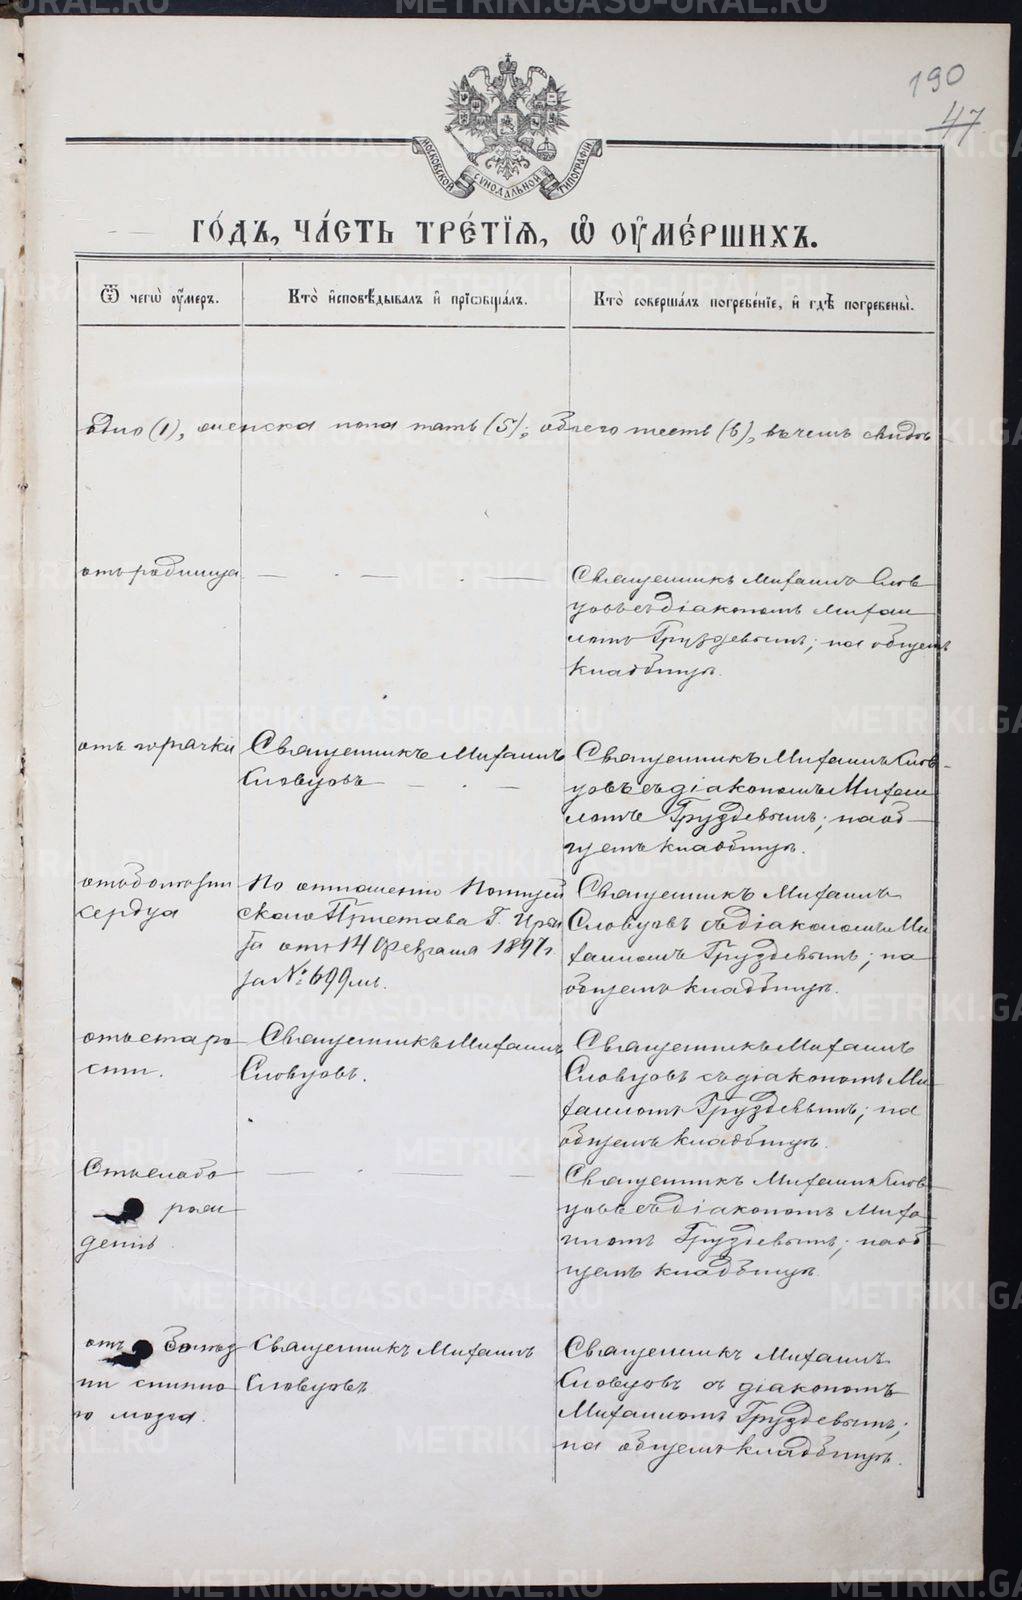 190
47
МОСКОВСКОЙ СѴНОДАЛЬНОЙ ТИПОГРАФІИ
ГО́ДЪ, ЧА́СТЬ ТРЕ́ТІѦ, Ѽ ОУМЕ́РШИХЪ.
Ѿ чегѡ̀ оумеръ.
Кто̀ и҆сповѣ́дывалъ и҆ прїѡбща́лъ.
Кто̀ соверша́лъ погребе́нїе, и҆ гдѣ̀ погребены̀.
одно (1), женска пола пять (5); обоего шесть (6), въ чемъ свидѣ
отъ родимца
Священникъ Михаилъ Слов
цовъ съ діакономъ Михаи
ломъ Груздевымъ; на общемъ
кладбищѣ.
отъ горячки
Священникъ Михаилъ
Словцовъ
Священникъ Михаилъ Слов-
цовъ съ діакономъ Михаи
ломъ Груздевымъ; на об-
щемъ кладбищѣ.
отъ болѣзни
сердца
По отношенію Полицей
скаго Пристава Г. Ирби
та отъ 14 Февраля 1897 г.
за № 699 мъ.
Священникъ Михаилъ
Словцовъ съ діакономъ Ми
хаиломъ Груздевымъ; на
общемъ кладбищѣ.
отъ старо
сти.
Священникъ Михаилъ
Словцовъ.
Священникъ Михаилъ
Словцовъ съ діакономъ Ми
хаиломъ Груздевымъ; на
общемъ кладбищѣ.
Отъ слабо
рож
денія
Священникъ Михаилъ Слов
цовъ съ діакономъ Миха
иломъ Груздевымъ; на об
щемъ кладбищѣ.
отъ болѣз
ни спинна
го мозга.
Священникъ Михаилъ
Словцовъ
Священникъ Михаилъ
Словцовъ съ діакономъ
Михаиломъ Груздевымъ;
на общемъ кладбищѣ.
METRIKI.GASO-URAL.RU